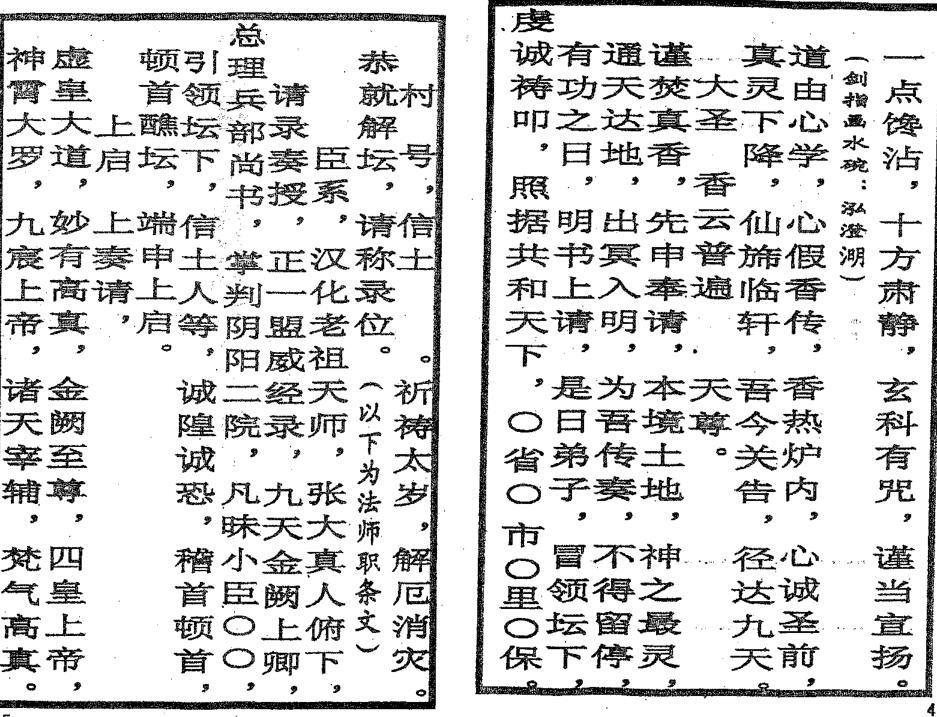 一点馋沾,十方肃静,玄科有咒,谨当宣扬。
(剑指画水碗:泓澄湖)
道由心学,心假香传,香热炉内,心诚圣前,
真灵下降,仙旆临轩,吾今关告,径达九天。
大圣 香云普遍 天尊。
谨焚真香,先申奉请,本境土地,神之最灵,
通天达地,出冥入明,为吾传奏,不得留停,
有功之日,明书上请,是日弟子,冒领坛下,
虔诚祷叩,照据共和天下,〇省〇市〇里〇保。
4
村 号,信士 。祈祷太岁,解厄消灾。
恭就解坛,请称录位。(以下为法师职条文)
臣系,汉化老祖天师,张大真人俯下,
请录奏授,正一盟威经录,九天金阙上卿,
总理兵部尚书,掌判阴阳二院,凡昧小臣〇〇,
引领坛下,信士人等,诚隍诚恐,稽首顿首,
顿首醮坛,端申上启。
上启 上奏请,
虚皇大道,妙有高真,金阙至尊,四皇上帝,
神霄大罗,九宸上帝,诸天宰辅,梵气高真。